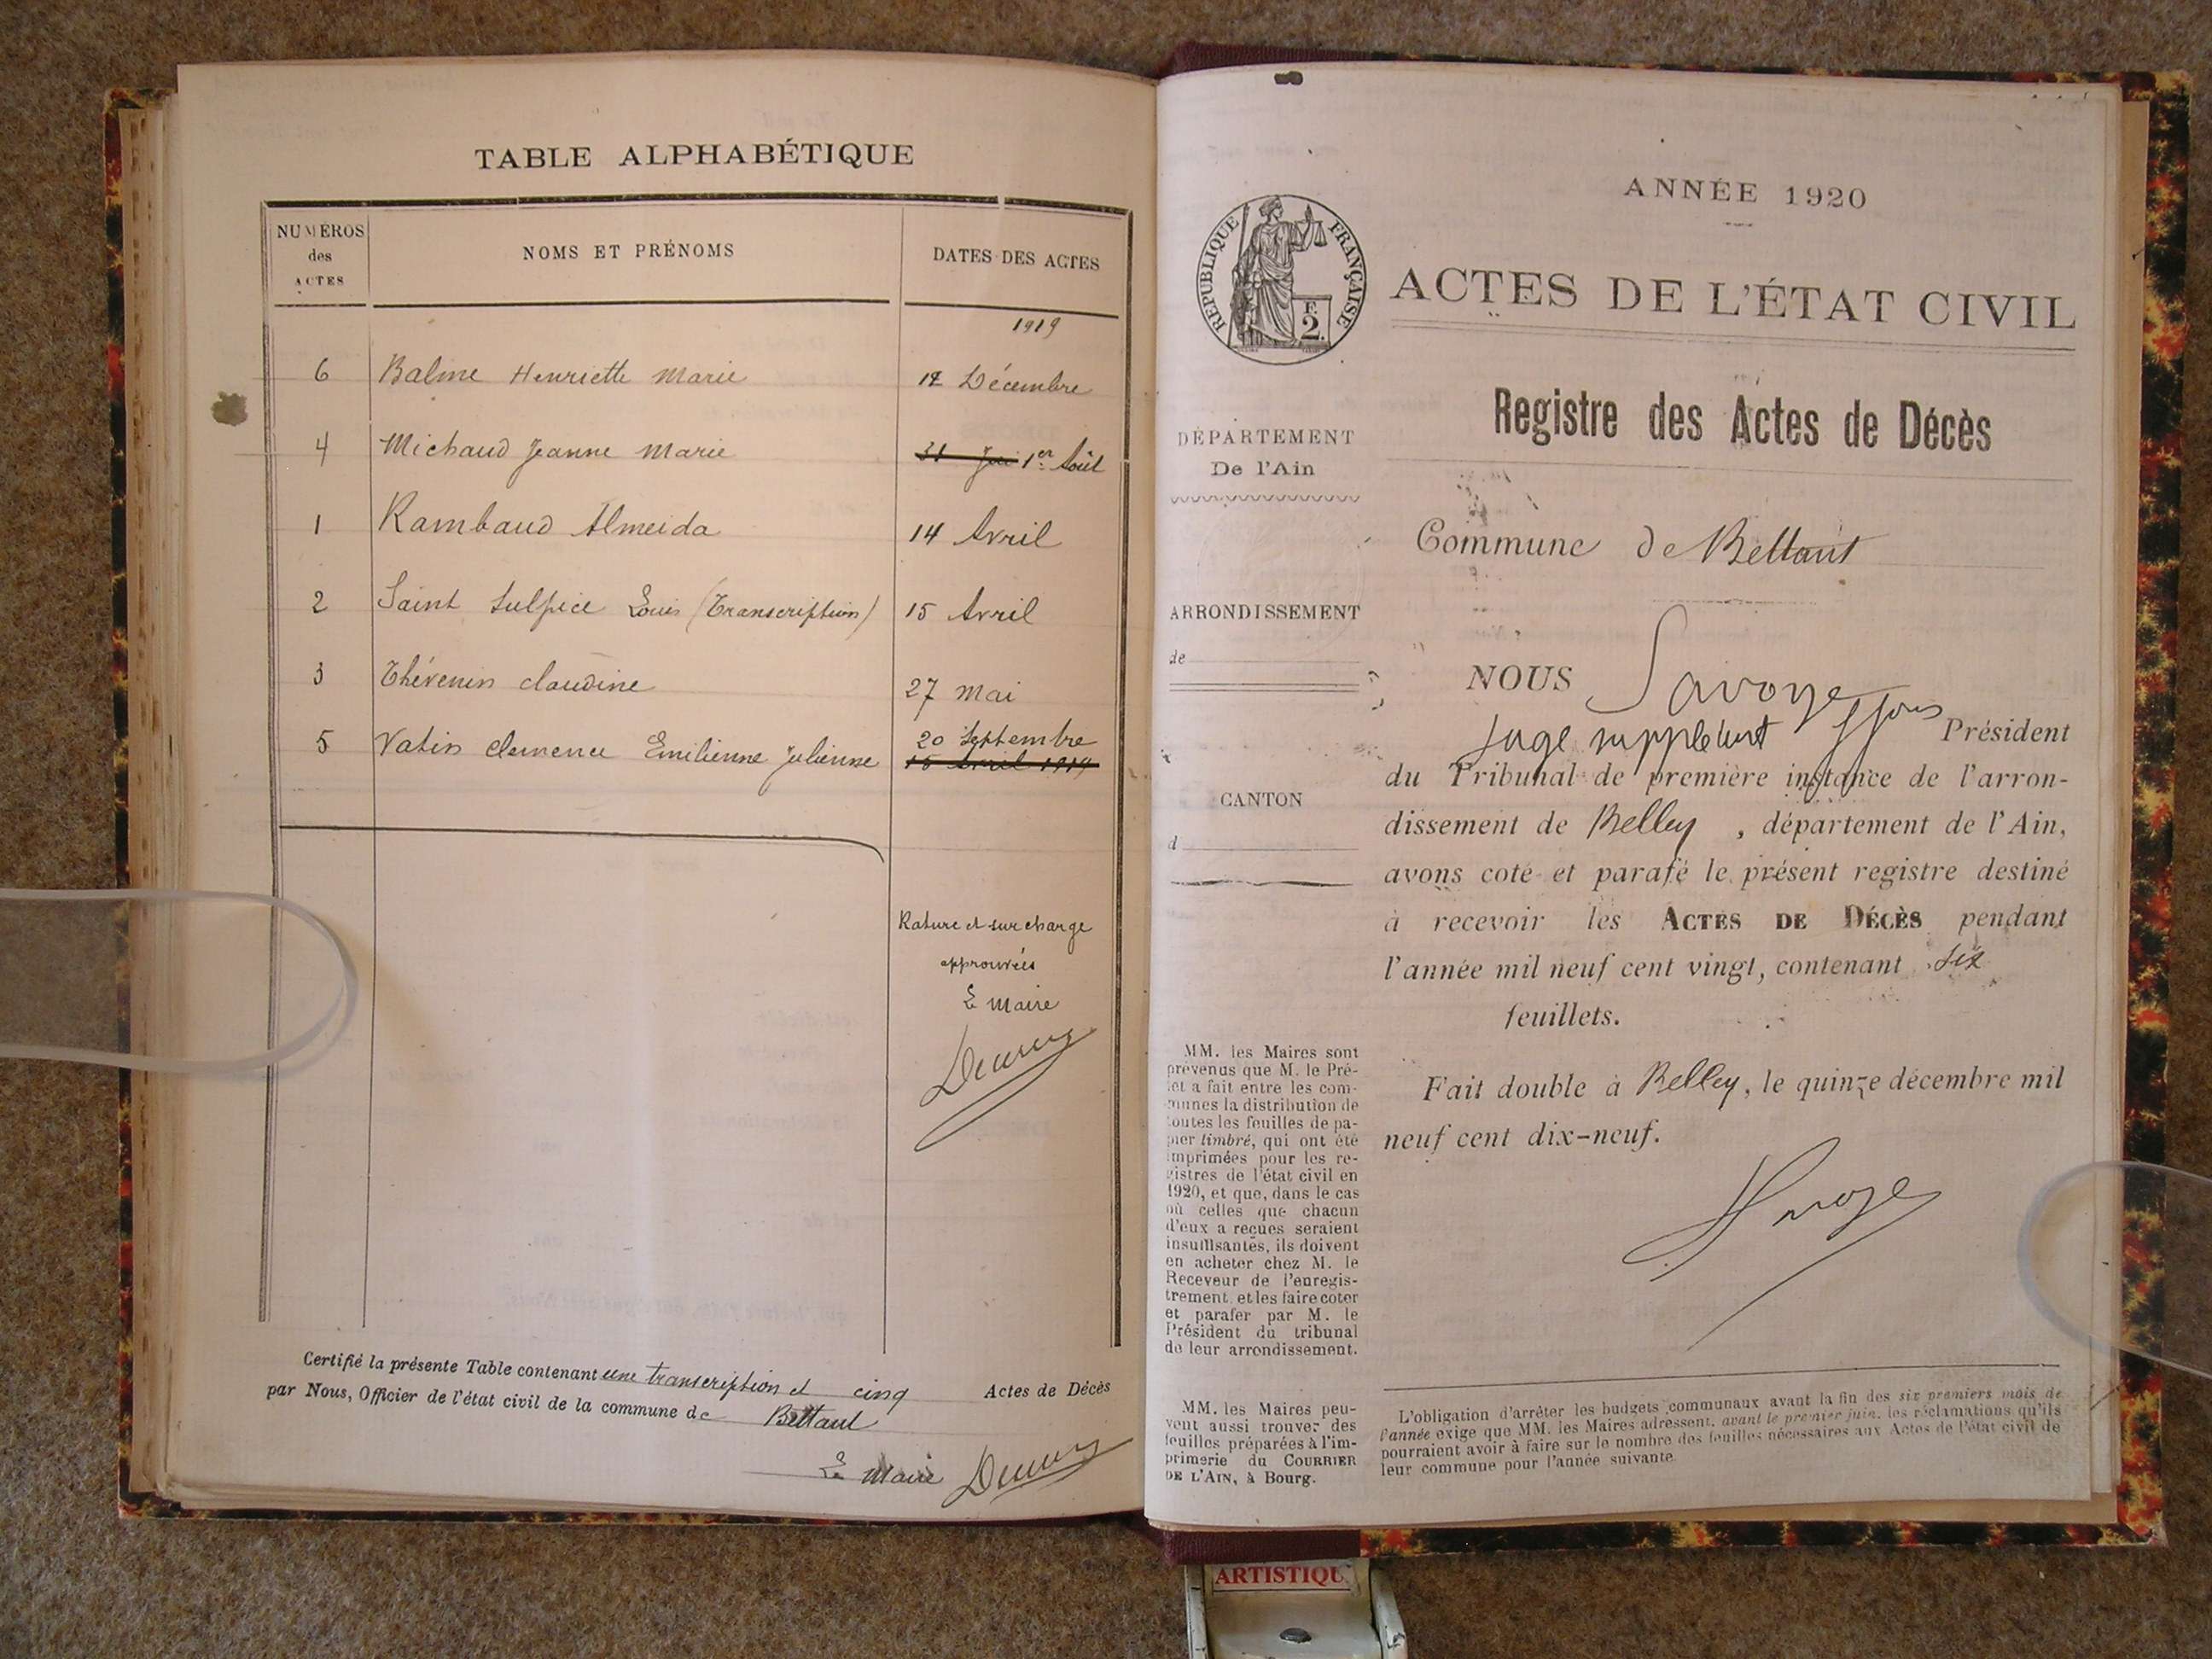 TABLE ALPHABÉTIQUE
NUMÉROS
des
ACTES
NOMS ET PRÉNOMS
DATES DES ACTES
1919
6 Balme Henriette Marie 12 Décembre
4 Michaud Jeanne Marie 31 1er Août
1 Rambaud Almeida 14 Avril
2 Saint Sulpice Louis (Transcription) 15 Avril
3 Thévenin claudine 27 mai
5 Vatin clemence Emilienne Julienne 20 Septembre
15 Avril 1919
Rature et surcharge
approuvées
Le Maire
Certifié la présente Table contenant une transcription et cinq Actes de Décès
par Nous, Officier de l'état civil de la commune de Bettant
Le Maire
ANNÉE 1920
RÉPUBLIQUE FRANÇAISE
F.
2.
ACTES DE L'ÉTAT CIVIL
Registre des Actes de Décès
DÉPARTEMENT
De l'Ain
Commune de Bettant
ARRONDISSEMENT
de
CANTON
d
NOUS Savoye
Juge suppléant Président
du Tribunal de première instance de l'arron-
dissement de Belley, département de l'Ain,
avons coté et parafé le présent registre destiné
à recevoir les ACTES DE DÉCÈS pendant
l'année mil neuf cent vingt, contenant six
feuillets.
Fait double à Belley, le quinze décembre mil
neuf cent dix-neuf.
Savoye
MM. les Maires sont
prévenus que M. le Pré-
fet a fait entre les com-
munes la distribution de
toutes les feuilles de pa-
pier timbré, qui ont été
imprimées pour les re-
gistres de l'état civil en
1920, et que, dans le cas
où celles que chacun
d'eux a reçues seraient
insuffisantes, ils doivent
en acheter chez M. le
Receveur de l'enregis-
trement, et les faire coter
et parafer par M. le
Président du tribunal
de leur arrondissement.
MM. les Maires peu-
vent aussi trouver des
feuilles préparées à l'im-
primerie du COURRIER
DE L'AIN, à Bourg.
L'obligation d'arrêter les budgets communaux avant la fin des six premiers mois de
l'année exige que MM. les Maires adressent, avant le premier juin, les réclamations qu'ils
pourraient avoir à faire sur le nombre des feuilles nécessaires aux Actes de l'état civil de
leur commune pour l'année suivante.
ARTISTIQU